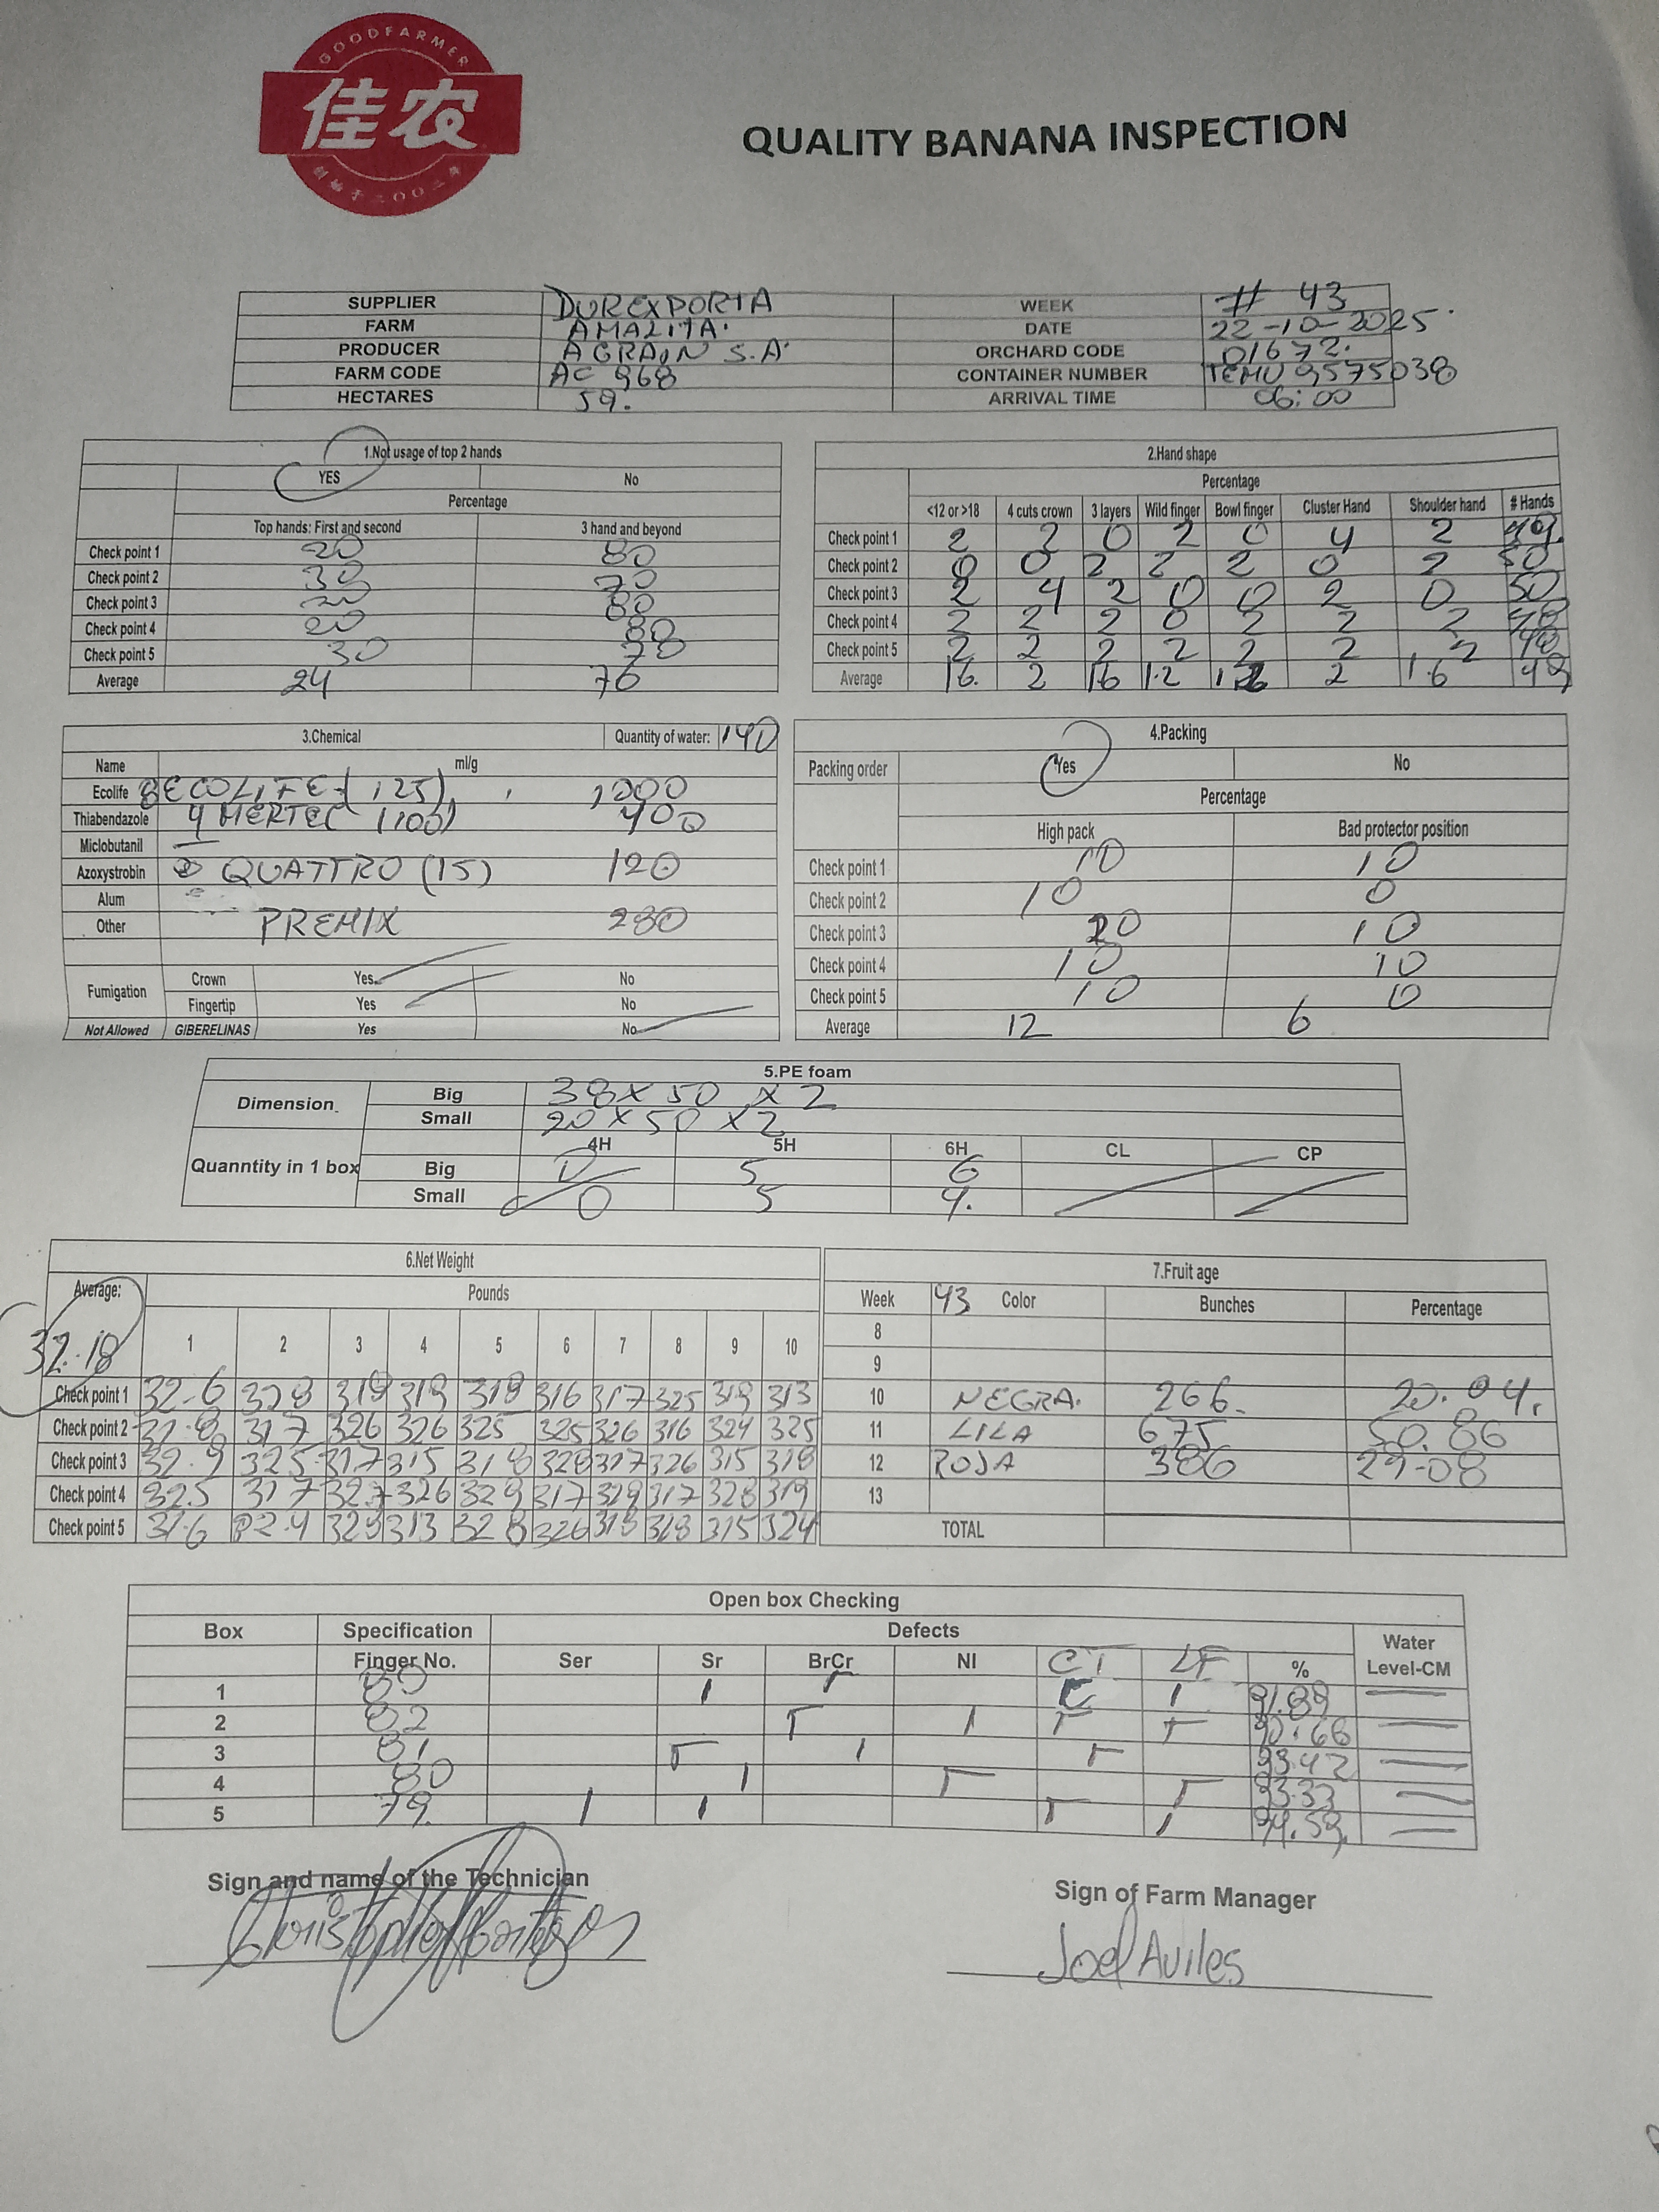 GOODFARMER
佳农
创始于二〇〇二年
QUALITY BANANA INSPECTION
SUPPLIER DUREXPORTA WEEK # 43
FARM AMALITA. DATE 22-10-2025.
PRODUCER AGRAIN S.A. ORCHARD CODE 01672.
FARM CODE AC 968 CONTAINER NUMBER TEMU 9575038
HECTARES 59. ARRIVAL TIME 06:00
1.Not usage of top 2 hands
YES No
Percentage
Top hands: First and second 3 hand and beyond
Check point 1 20 80
Check point 2 30 70
Check point 3 20 80
Check point 4 20 80
Check point 5 30 70
Average 24 76
2.Hand shape
Percentage
<12 or >18 4 cuts crown 3 layers Wild finger Bowl finger Cluster Hand Shoulder hand # Hands
Check point 1 2 2 0 2 0 4 2 49.
Check point 2 0 0 2 2 2 0 2 50
Check point 3 2 4 2 0 0 2 0 50
Check point 4 2 2 2 0 2 2 2 48
Check point 5 2 2 2 2 2 2 2 48
Average 16. 2 16 1.2 2 1.6 49
3.Chemical Quantity of water: 140
Name ml/g
Ecolife 8 ECOLIFE (125) 1000
Thiabendazole 4 MERTEC (100) 400
Miclobutanil —
Azoxystrobin QUATTRO (15) 120
Alum
Other PREMIX 280
Fumigation Crown Yes No
Fingertip Yes No
Not Allowed GIBERELINAS Yes No
4.Packing
Packing order Yes No
Percentage
High pack Bad protector position
Check point 1 10 10
Check point 2 10 0
Check point 3 20 10
Check point 4 10 10
Check point 5 10 0
Average 12 6
5.PE foam
Dimension Big 38 x 50 x 2
Small 20 x 50 x 2
4H 5H 6H CL CP
Quanntity in 1 box Big 0 5 6
Small 0 5 4.
6.Net Weight
Average: Pounds
32.18 1 2 3 4 5 6 7 8 9 10
Check point 1 32.6 328 319 319 318 316 317 325 319 313
Check point 2 32.8 317 326 326 325 325 326 316 324 325
Check point 3 32.9 325 317 315 318 328 317 326 315 318
Check point 4 32.5 317 327 326 329 317 329 317 328 319
Check point 5 31.6 32.4 329 313 328 326 318 318 315 324
7.Fruit age
Week 43 Color Bunches Percentage
8
9
10 NEGRA. 266. 20.04.
11 LILA 675 50.86
12 ROJA 386 29.08
13
TOTAL
Open box Checking
Box Specification Defects Water
Finger No. Ser Sr BrCr NI CT LF % Level-CM
1 80 91.89
2 82 90.66
3 81 93.42
4 80 93.33
5 79. 94.59.
Sign and name of the Technician
Sign of Farm Manager
Joel Aviles